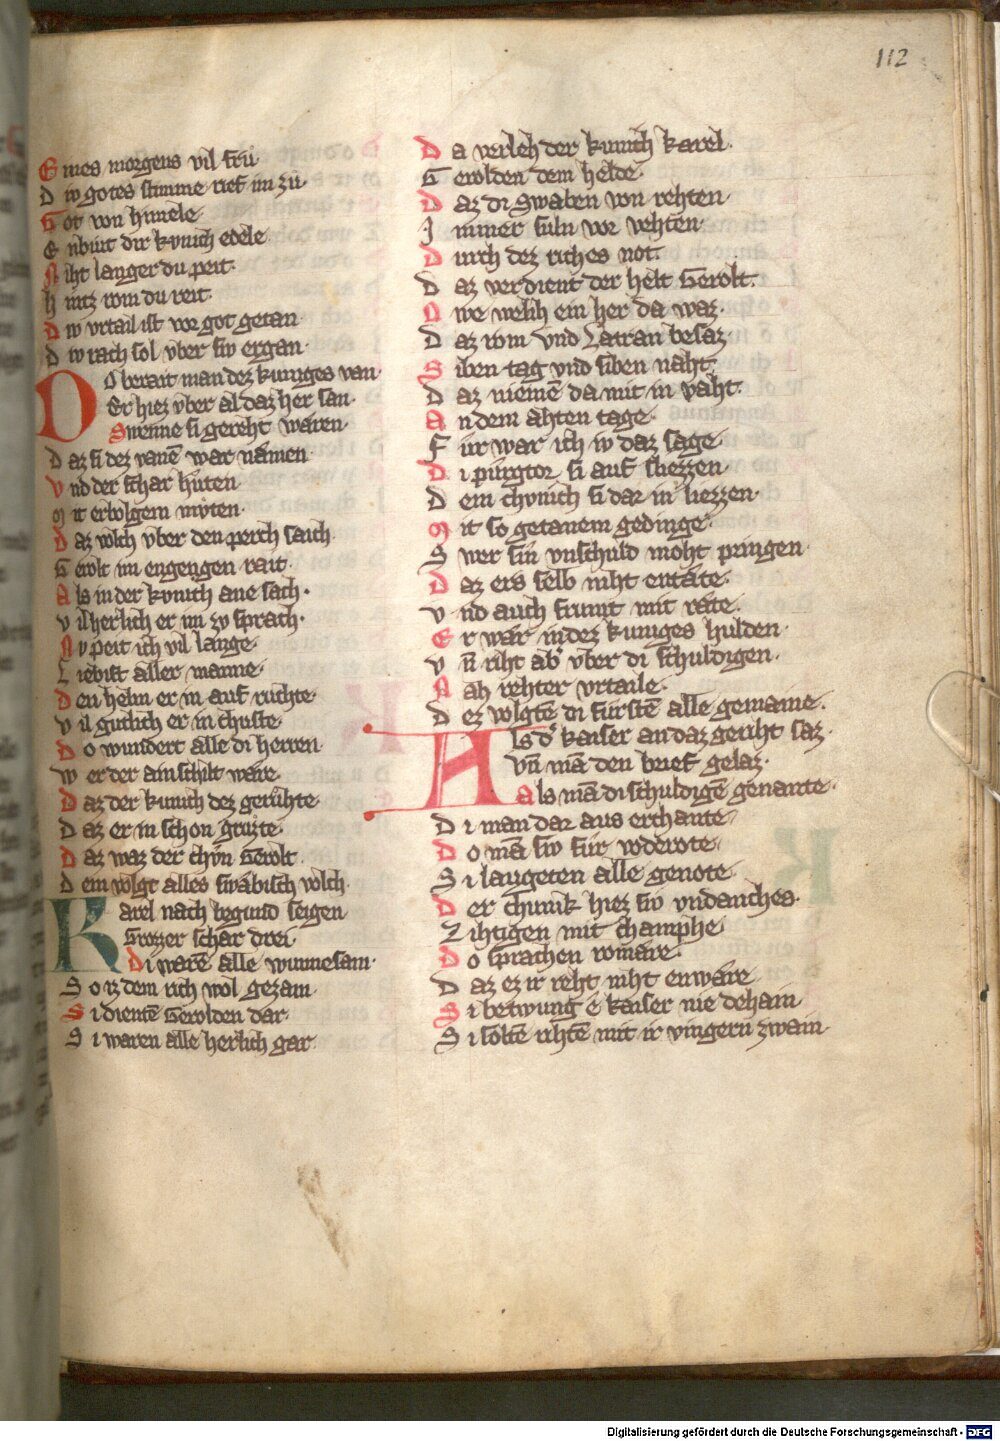 112
Eines morgens vil frů
D iv gotes stimme rief im zů
Got von himele
E nbiut dir kvnich edele
Niht langer du peit
h intz rom du reit
D iv vrtail ist vor got getan
D iv rach sol vber siv ergan
Do berait man dez kuniges van
Er hiez vber al daz her san
Swenne si gereht waren
D az si dez vanē war namen
V nd der schar hůten
M it erbolgem můten
D az volch vber den perch saich
G erolt im engengen rait
A ls in der kvnich ane sach
v il herlich er im zv sprach
Nv peit ich vil lange
L iebist aller manne
D en helm er in auf ruchte
v il gutlich er in chuste
D o wundert alle di herren
W er der ain schilt ware
D az der kunich dez gerůhte
D az er in schon gruzte
D az waz der chůn Gerolt
D em volgt alles swäbisch volch
Karel nach begund seigen
Grozzer schar drei
Di warē alle wunnesam
S o iz dem rich wol gezam
S i dientē Gerolden dar
S i waren alle herlich gar
D a verleh der kunich karel
G erolden dem helde
D az di Swaben von rehten
I mmer suln vor vehten
D urch dez riches not
D az verdient der helt Gerolt
O we welih ein her da waz
D az rom vnd Latran besaz
S iben tag vnd siben naht
D az niemē da mit in vaht
A n dem ahten tage
F ur war ich iv daz sage
D i purgtor si auf sliezzen
D em chvnich si dar in liezzen
M it so getanem gedinge
S wer sin vnschuld moht pringen
D az ers selb niht entäte
v nd auch frumt mit räte
E r wär in dez kuniges hulden
v n̄ riht ab' vber di schuldigen
N ah rehter vrtaile
D ez volgtē di furstē alle gemaine
Als d' kaiser an daz geriht saz
Vn̄ mā den brief gelaz
Als mā di schuldigē genante
D i man dar aus erchante
D o mā siv fur voderote
S i laugeten alle genote
D er chunik hiez siv vndanches
Z ihtigen mit champhe
D o sprachen romäre
D az ez ir reht niht enwäre
S i betwung e kaiser nie dehain
S i soltē rihtē mit ir vingern zwain
Digitalisierung gefördert durch die Deutsche Forschungsgemeinschaft - DFG